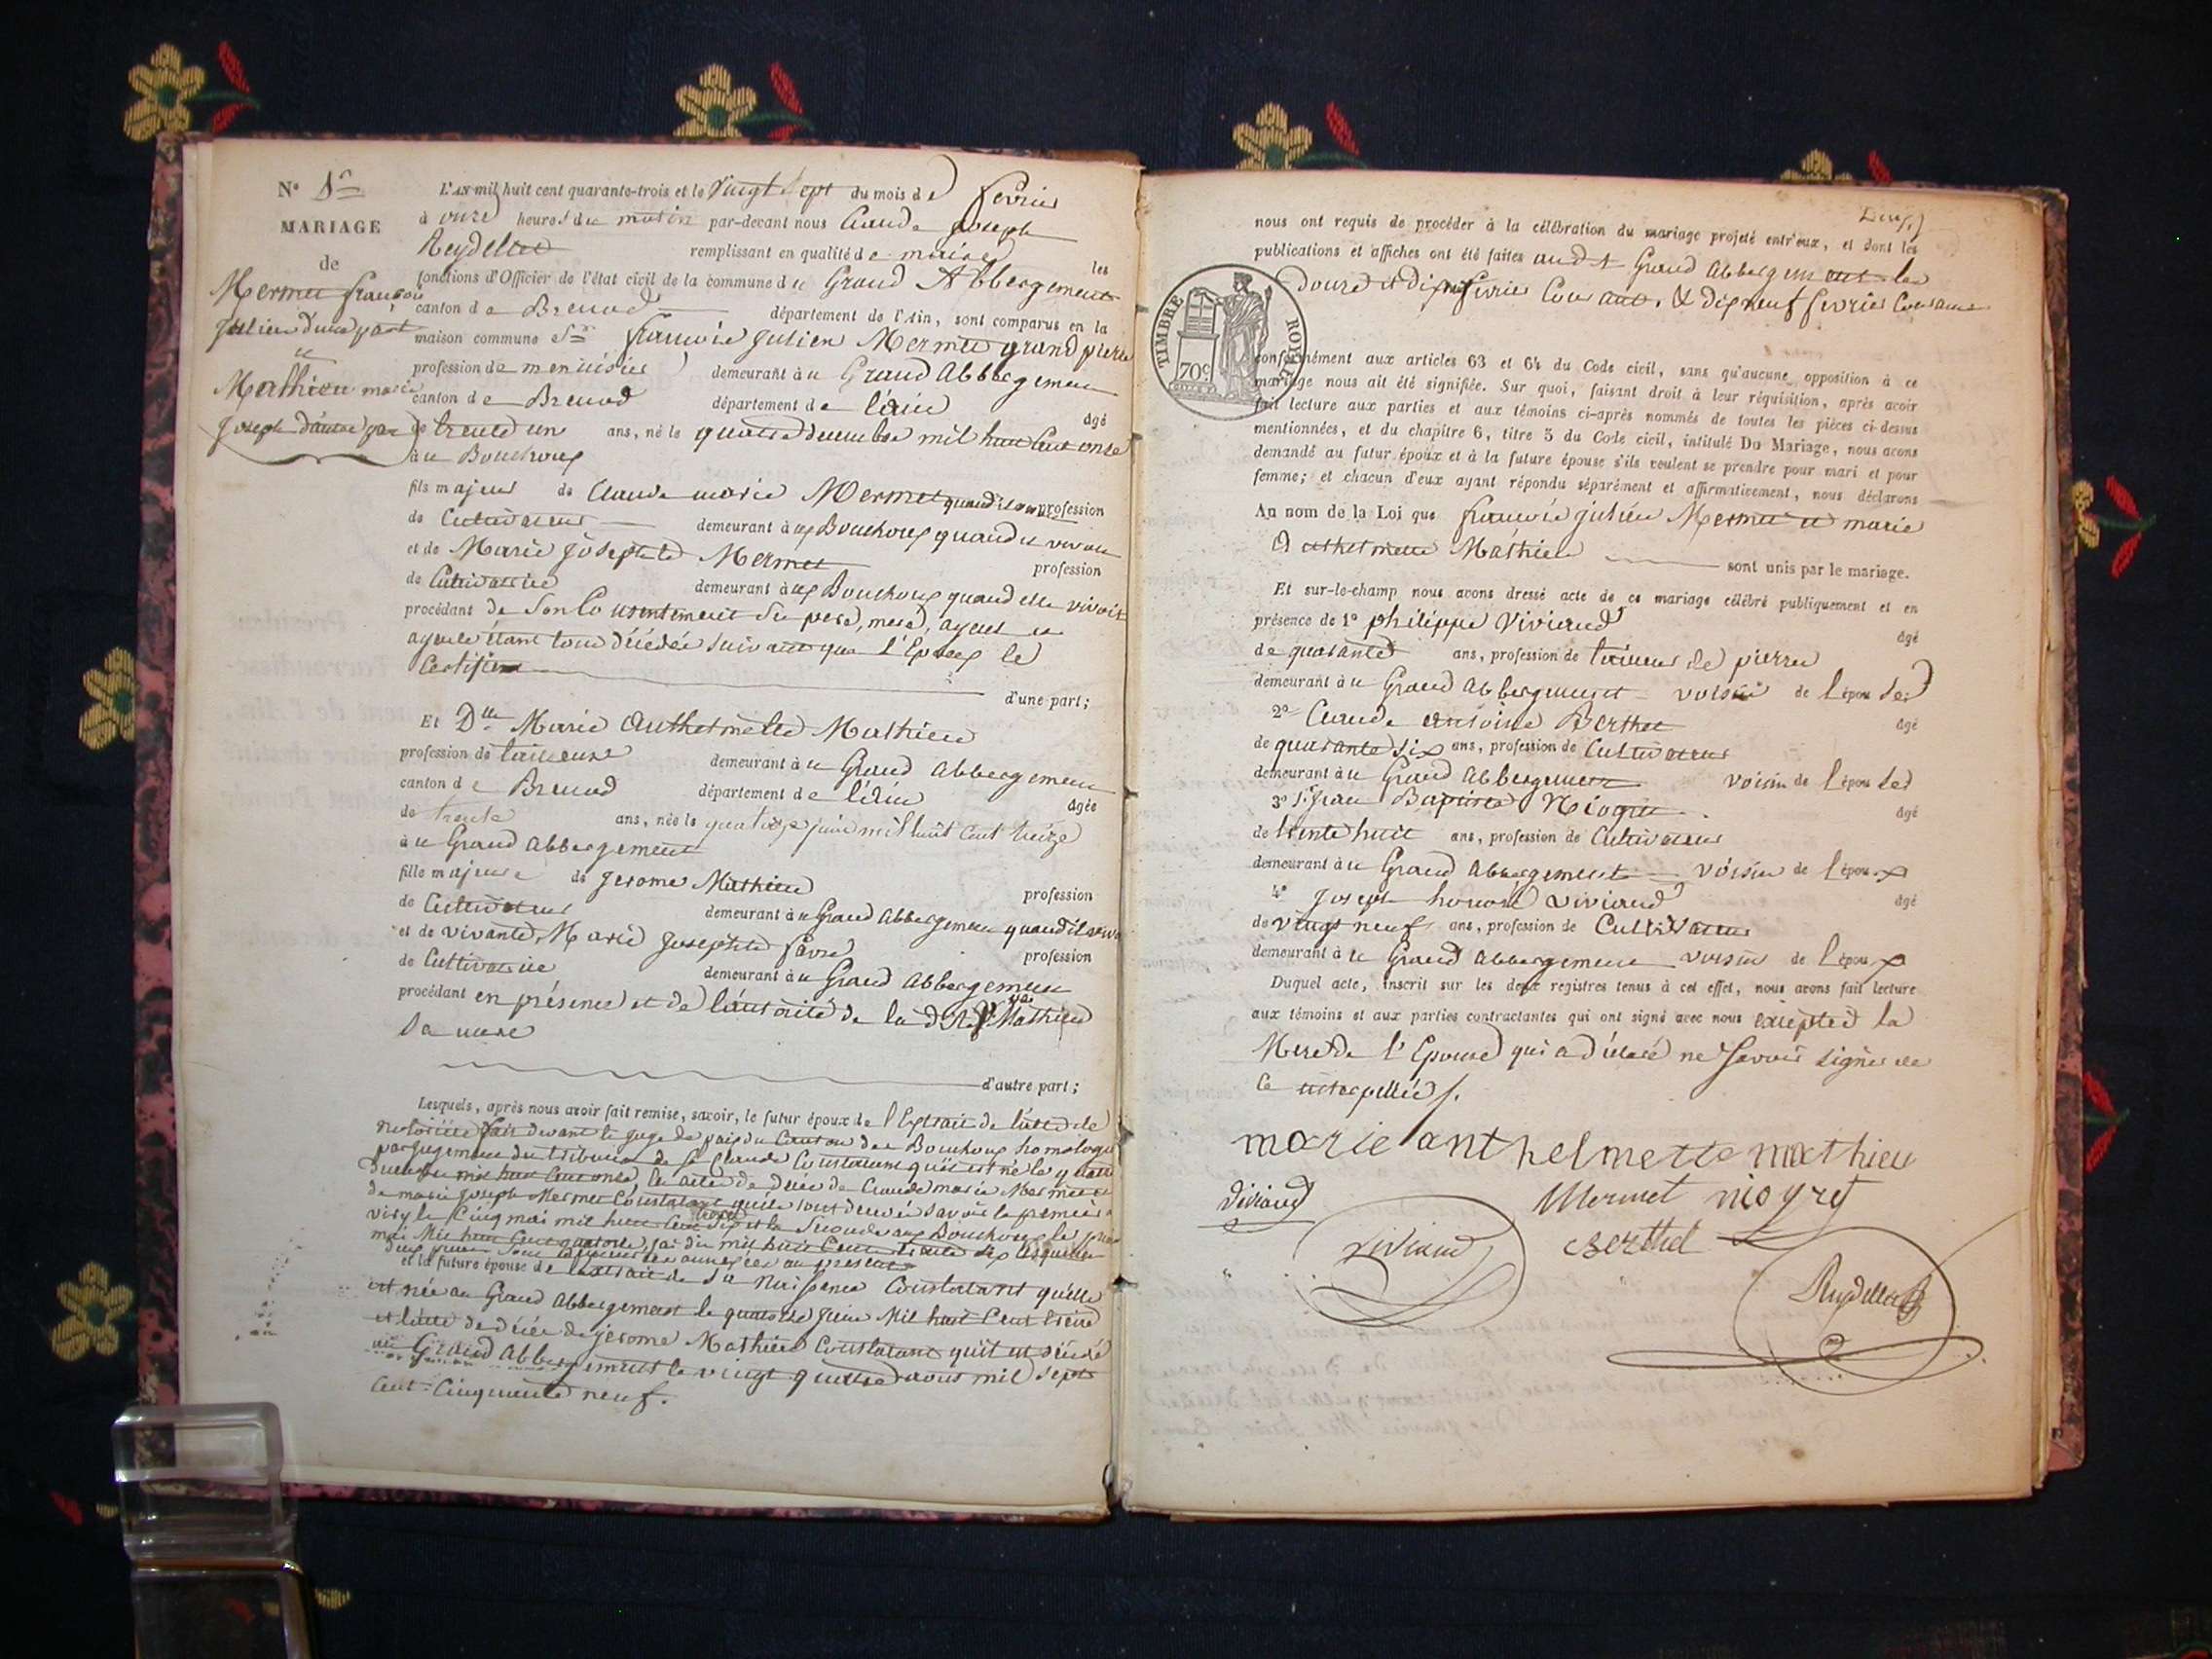 N° 1er
MARIAGE
de
Mermet françois
Julien d'une part
et
Mathieu marie
Joseph d'autre part
L'AN mil huit cent quarante-trois et le vingt sept du mois de fevrier
à onze heures du matin par-devant nous Claude Joseph
Reydellet remplissant en qualité de maire les
fonctions d'Officier de l'état civil de la commune du Grand Abbergement
canton de Brenod département de l'Ain, sont comparus en la
maison commune Sr françois Julien Mermet grand pierre
profession de menuisier demeurant à u Grand Abbergement
canton de Brenod département de l'ain âgé
de trente un ans, né le quatre decembre mil huit Cent onze
à ux Bouchoux
fils majeur de Claude marie Mermet quand il vivait profession
de Cultivateur demeurant à ux Bouchoux quand il vivait
et de Marie Josephte Mermet profession
de Cultivatrice demeurant à ux Bouchoux quand elle vivait
procédant de Son Consentement Ses pere, mere, ayeul et
ayeule étant tous décédés suivant que l'Epoux le
Certifie
d'une part;
Et Dlle Marie Anthelmette Mathieu
profession de tailleuse demeurant à u Grand Abbergement
canton de Brenod département de l'ain âgée
de trente ans, née le quatorze juin mil huit Cent treize
à u Grand Abbergement
fille majeure de Jerome Mathieu profession
de Cultivateur demeurant à u Grand Abbergement quand il vivait
et de vivante, Marie Josephte favre profession
de Cultivatrice demeurant à u Grand Abbergement
procédant en présence et de l'autorité de la dite Mathieu
Sa mere
d'autre part;
Lesquels, après nous avoir fait remise, savoir, le futur époux de l'Extrait de l'acte de
notoriété fait devant le juge de paix du Canton des Bouchoux homologué
par jugement du tribunal de St Claude Constatant qu'il est né le quatre
decembre mil huit Cent onze, les actes de décés de Claude marie Mermet et
de marie Joseph Mermet Constatant qu'ils sont decedés savoir le premier a
viry le Cinq mai mil huit Cent dix et la Seconde aux Bouchoux le
mai Mil huit Cent mil huit Cent trente six lesquelles
annexées au present
et la future épouse de l'extrait de sa naissance Constatant qu'elle
est née au Grand Abbergement le quatorze Juin Mil huit Cent treize
et l'acte de décés de jerome Mathieu Constatant qu'il est décédé
au Grand Abbergement le vingt quatre aout mil sept
Cent Cinquante neuf.
Deux
nous ont requis de procéder à la célébration du mariage projeté entr'eux, et dont les
publications et affiches ont été faites audit Grand Abbergement les
Douze et fevrier Courant, & dix neuf fevrier Courant
TIMBRE ROYAL
70c
conformément aux articles 63 et 64 du Code civil, sans qu'aucune opposition à ce
mariage nous ait été signifiée. Sur quoi, faisant droit à leur réquisition, après avoir
fait lecture aux parties et aux témoins ci-après nommés de toutes les pièces ci-dessus
mentionnées, et du chapitre 6, titre 5 du Code civil, intitulé Du Mariage, nous avons
demandé au futur époux et à la future épouse s'ils veulent se prendre pour mari et pour
femme; et chacun d'eux ayant répondu séparément et affirmativement, nous déclarons
Au nom de la Loi que françois julien Mermet et marie
Anthelmette Mathieu sont unis par le mariage.
Et sur-le-champ nous avons dressé acte de ce mariage célébré publiquement et en
présence de 1° philippe Viviand âgé
de quarante ans, profession de tailleur de pierre
demeurant à u Grand Abbergement voisin de l'épouse
2° Claude antoine Berthet âgé
de quarante six ans, profession de Cultivateur
demeurant à u Grand Abbergement voisin de l'épouse
3° Sr Jean Baptiste Niogret âgé
de trente huit ans, profession de Cultivateur
demeurant à u Grand Abbergement voisin de l'époux
4° Joseph honoré Viviand âgé
de vingt neuf ans, profession de Cultivateur
demeurant à u Grand Abbergement voisin de l'époux
Duquel acte, inscrit sur les deux registres tenus à cet effet, nous avons fait lecture
aux témoins et aux parties contractantes qui ont signé avec nous excepté la
Mere de l'Epouse qui a déclaré ne savoir signer de
ce interpellée.
marie anthelmette mathieu
viviand Mermet niogret
viviand Berthet
Reydellet